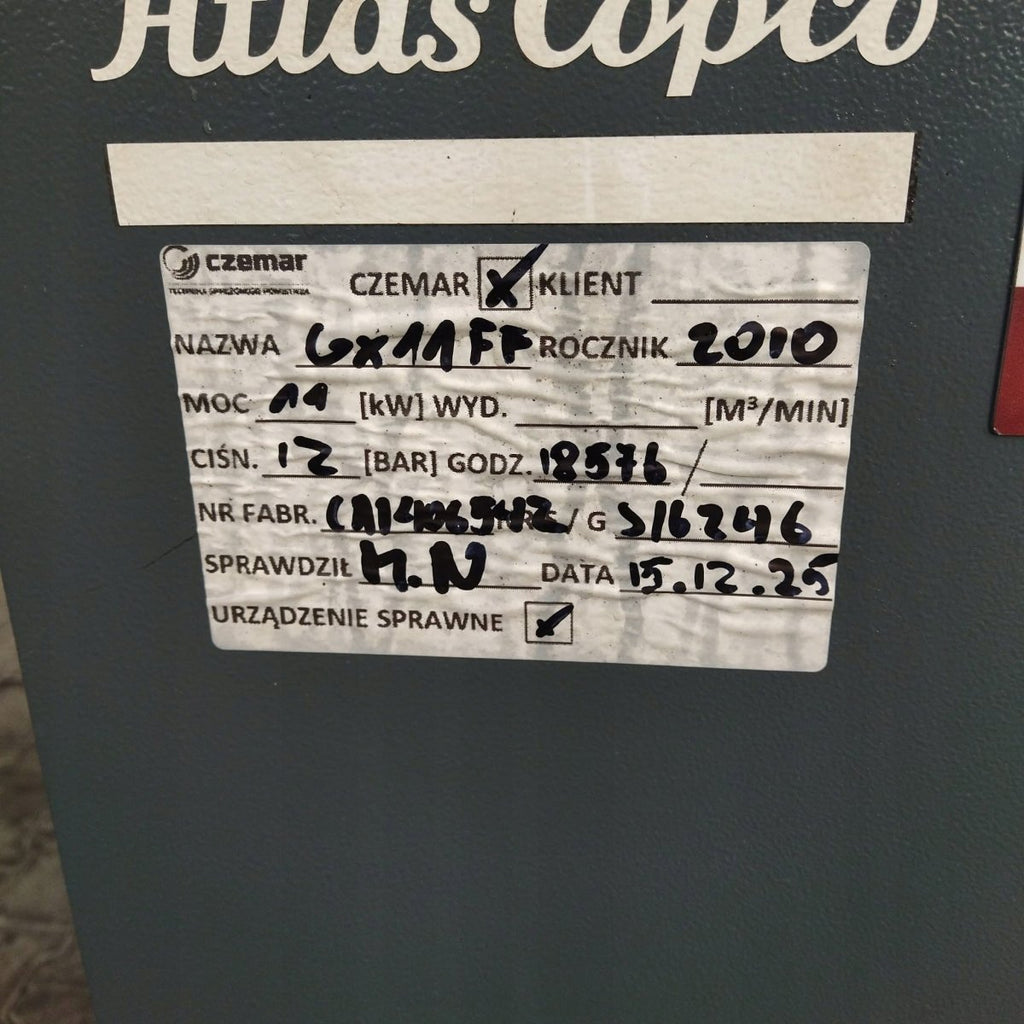 Atlas Copco
czemar
TECHNIKA SPRĘŻONEGO POWIETRZA
CZEMAR X KLIENT
NAZWA Gx11FF ROCZNIK 2010
MOC 11 [kW] WYD. [M³/MIN]
CIŚN. 12 [BAR] GODZ. 18576 /
NR FABR. / G S/6246
SPRAWDZIŁ M.N DATA 15.12.25
URZĄDZENIE SPRAWNE ✓